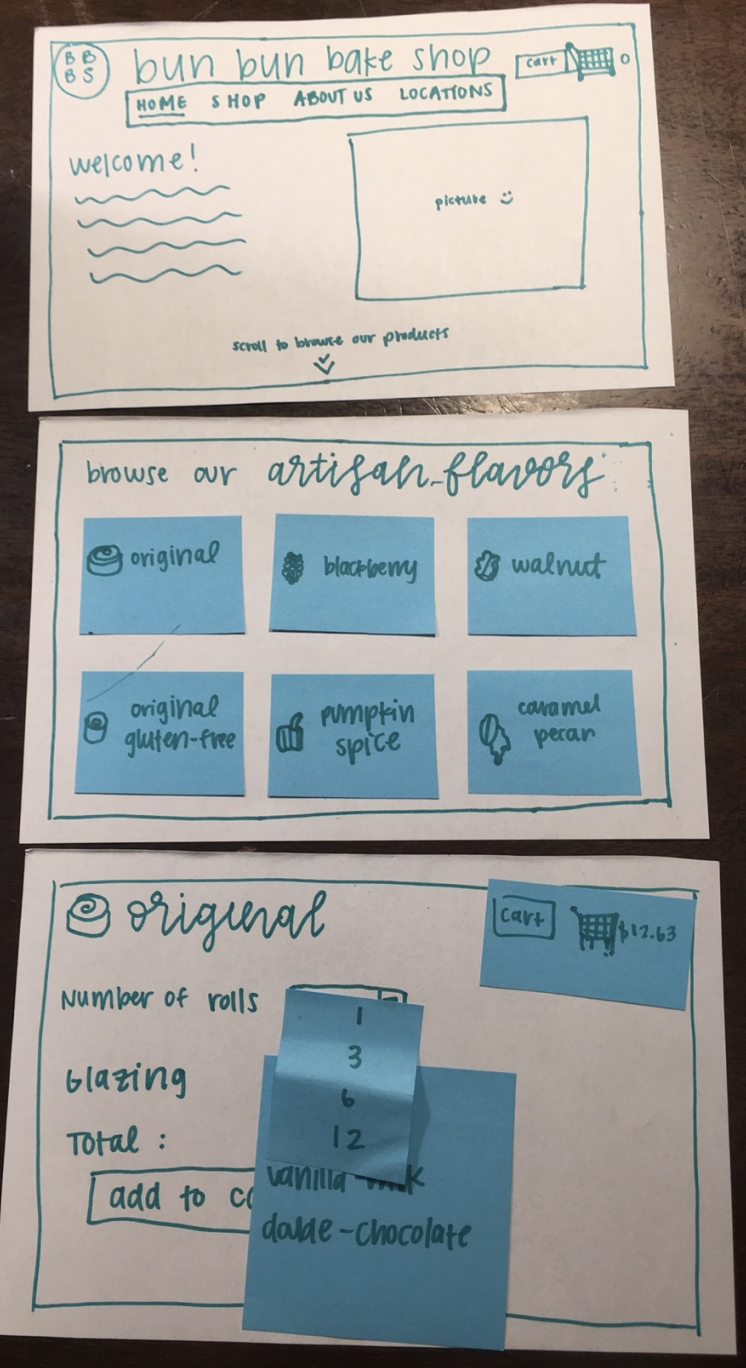 B B
B S
bun bun bake shop
cart 0
HOME SHOP ABOUT US LOCATIONS
welcome!
picture
scroll to browse our products
browse our artisan flavors
original
blackberry
walnut
original
gluten-free
pumpkin
spice
caramel
pecan
original
cart $12.63
Number of rolls
1
3
6
12
Glazing
Total :
add to
vanilla-milk
double-chocolate